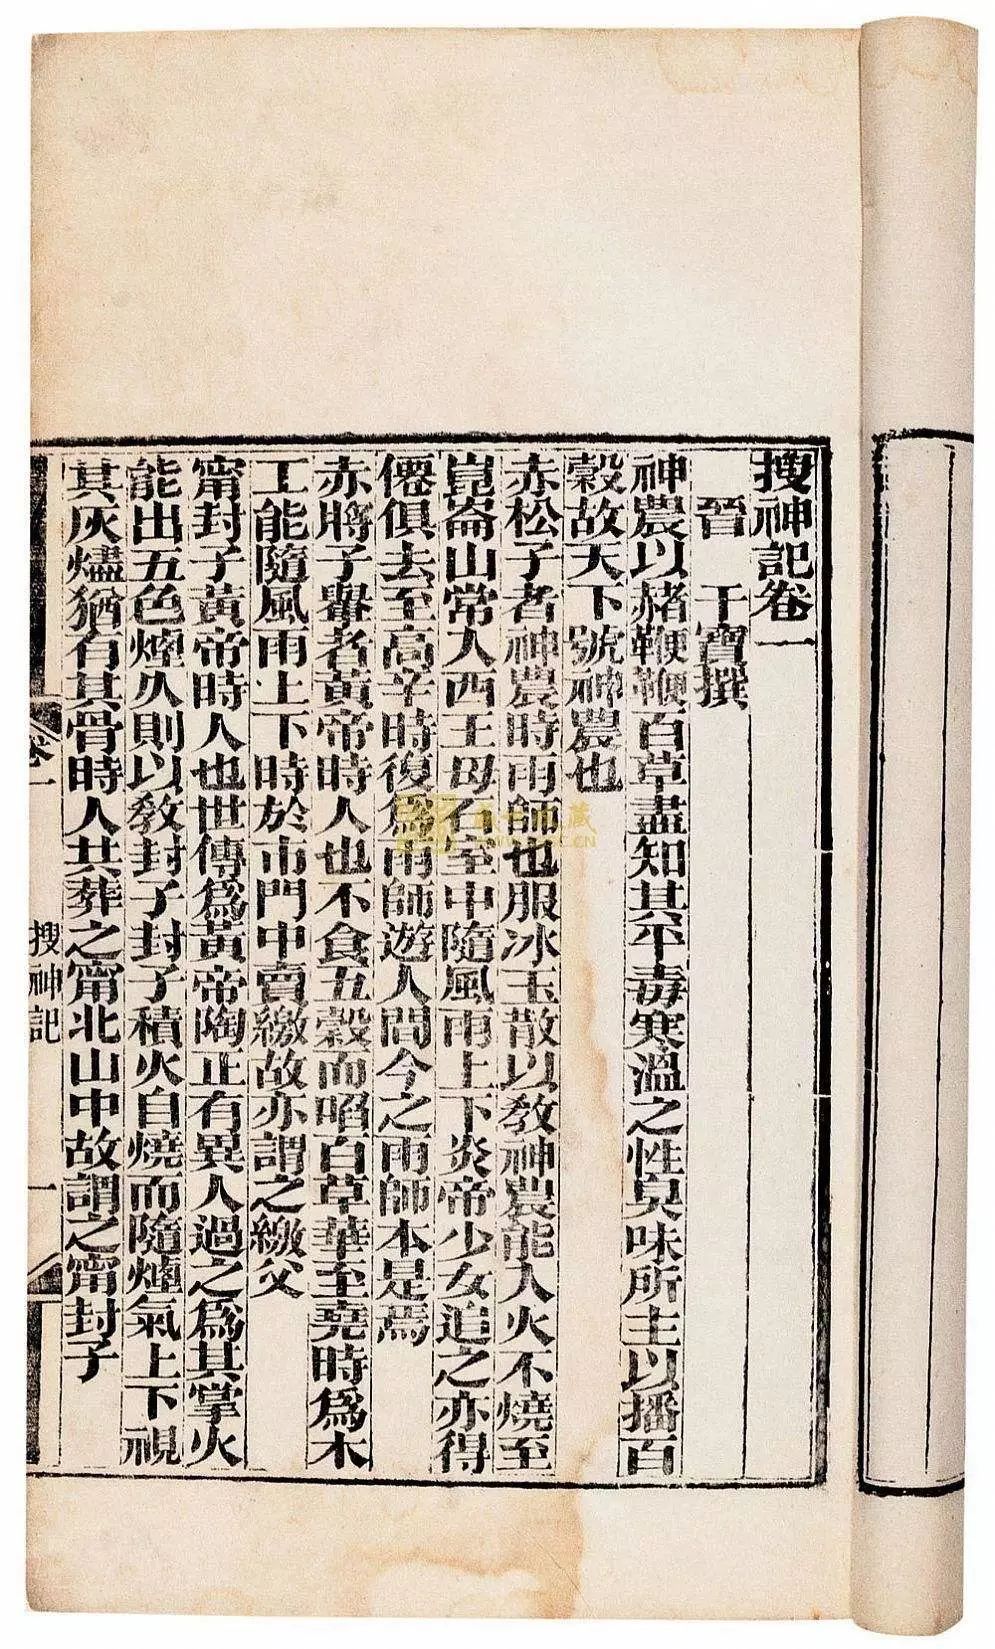 搜神記卷一
晉　干寶撰
神農以赭鞭鞭百草盡知其平毒寒溫之性臭味所主以播百
穀故天下號神農也
赤松子者神農時雨師也服冰玉散以教神農能入火不燒至
崑崙山常入西王母石室中隨風雨上下炎帝少女追之亦得
僊俱去至高辛時復爲雨師遊人間今之雨師本是焉
赤將子轝者黃帝時人也不食五穀而啗百草華至堯時爲木
工能隨風雨上下時於市門中賣繳故亦謂之繳父
甯封子黃帝時人也世傳爲黃帝陶正有異人過之爲其掌火
能出五色煙久則以教封子封子積火自燒而隨煙氣上下視
其灰燼猶有其骨時人共葬之甯北山中故謂之甯封子
卷一　搜神記　一